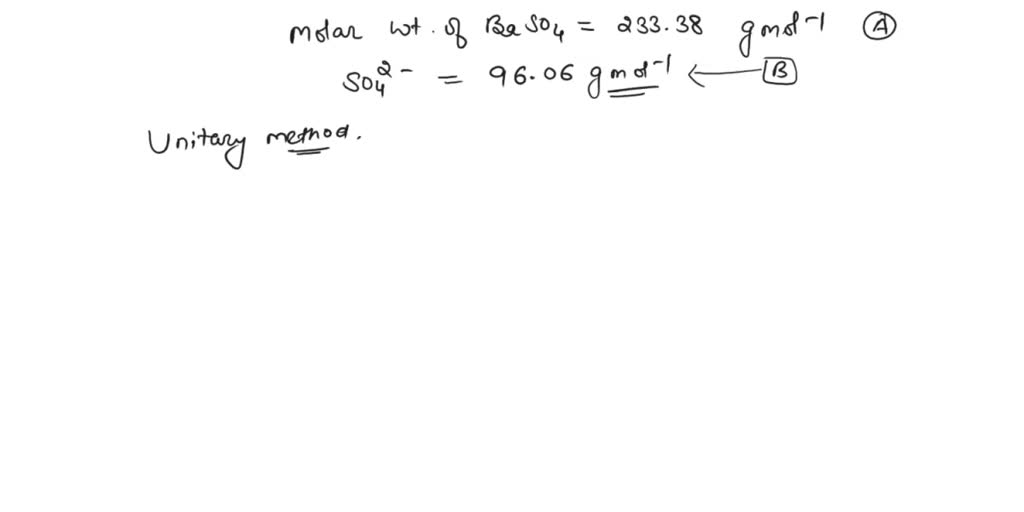 molar wt. of BaSO₄ = 233.38 g mol⁻¹ Ⓐ
SO₄²⁻ = 96.06 g mol⁻¹ ← B
Unitary method.